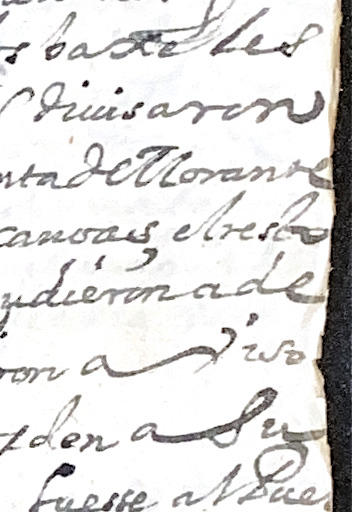 s baxeles
divisaron
nta de Morante
canoas, el resto
udieron a de
ron aviso
den a Su
fuesse al Pue